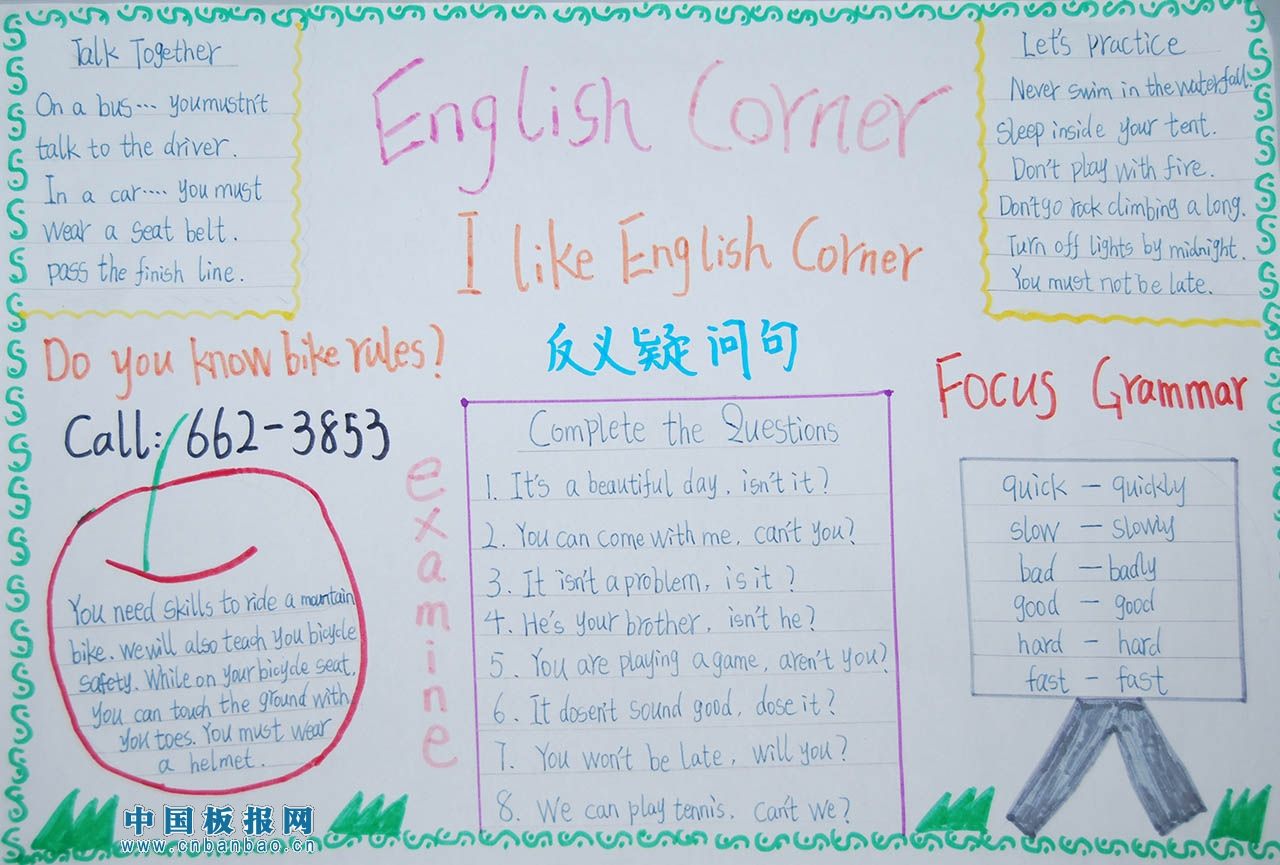 Talk Together
On a bus... you mustn't
talk to the driver.
In a car.... you must
wear a seat belt.
pass the finish line.
English Corner
I like English Corner
Let's practice
Never swim in the waterfall.
sleep inside your tent.
Don't play with fire.
Don't go rock climbing a long.
Turn off lights by midnight.
You must not be late.
Do you know bike rules?
Call: 662-3853
You need skills to ride a mountain
bike. we will also teach you bicycle
safety. While on your bicycle seat,
you can touch the ground with
you toes. You must wear
a helmet.
examine
反义疑问句
Complete the Questions
1. It's a beautiful day, isn't it?
2. You can come with me, can't you?
3. It isn't a problem, is it?
4. He's your brother, isn't he?
5. You are playing a game, aren't you?
6. It dosen't sound good, dose it?
7. You won't be late, will you?
8. We can play tennis, can't we?
Focus Grammar
quick - quickly
slow - slowly
bad - badly
good - good
hard - hard
fast - fast
中国板报网
www.cnbanbao.cn